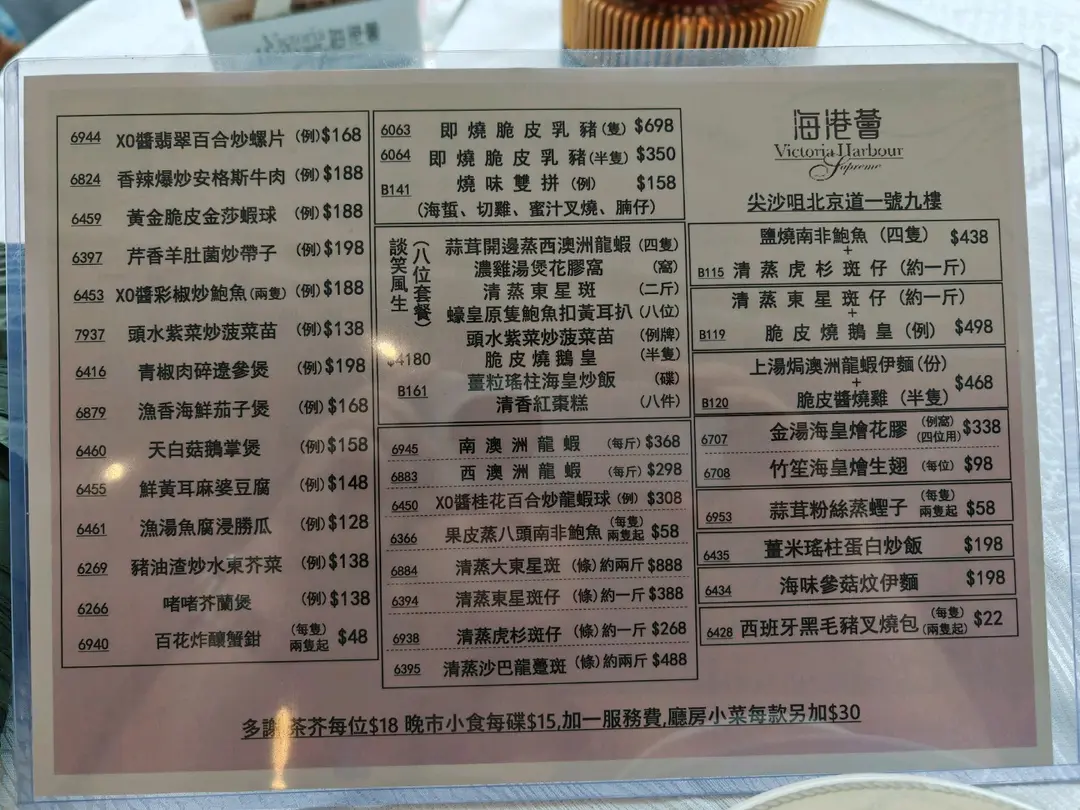 6944 XO醬翡翠百合炒螺片 (例) $168
6824 香辣爆炒安格斯牛肉 (例) $188
6459 黃金脆皮金莎蝦球 (例) $188
6397 芹香羊肚菌炒帶子 (例) $198
6453 XO醬彩椒炒鮑魚 (兩隻) (例) $188
7937 頭水紫菜炒菠菜苗 (例) $138
6416 青椒肉碎遼參煲 (例) $198
6879 漁香海鮮茄子煲 (例) $168
6460 天白菇鵝掌煲 (例) $158
6455 鮮黃耳麻婆豆腐 (例) $148
6461 漁湯魚腐浸勝瓜 (例) $128
6269 豬油渣炒水東芥菜 (例) $138
6266 啫啫芥蘭煲 (例) $138
6940 百花炸釀蟹鉗 (每隻) 兩隻起 $48
6063 即燒脆皮乳豬 (隻) $698
6064 即燒脆皮乳豬 (半隻) $350
B141 燒味雙拼 (例) $158
(海蜇、切雞、蜜汁叉燒、腩仔)
談笑風生
(八位套餐)
$4180
B161
蒜茸開邊蒸西澳洲龍蝦 (四隻)
濃雞湯煲花膠窩 (窩)
清蒸東星斑 (二斤)
蠔皇原隻鮑魚扣黃耳扒 (八位)
頭水紫菜炒菠菜苗 (例牌)
脆皮燒鵝皇 (半隻)
薑粒瑤柱海皇炒飯 (碟)
清香紅棗糕 (八件)
6945 南澳洲龍蝦 (每斤) $368
6883 西澳洲龍蝦 (每斤) $298
6450 XO醬桂花百合炒龍蝦球 (例) $308
6366 果皮蒸八頭南非鮑魚 (每隻) 兩隻起 $58
6884 清蒸大東星斑 (條) 約兩斤 $888
6394 清蒸東星斑仔 (條) 約一斤 $388
6938 清蒸虎杉斑仔 (條) 約一斤 $268
6395 清蒸沙巴龍躉斑 (條) 約兩斤 $488
海港薈
Victoria Harbour
Supreme
尖沙咀北京道一號九樓
鹽燒南非鮑魚 (四隻) $438
+
B115 清蒸虎杉斑仔 (約一斤)
清蒸東星斑仔 (約一斤)
+
B119 脆皮燒鵝皇 (例) $498
上湯焗澳洲龍蝦伊麵 (份)
+ $468
B120 脆皮醬燒雞 (半隻)
6707 金湯海皇燴花膠 (例窩) (四位用) $338
6708 竹笙海皇燴生翅 (每位) $98
6953 蒜茸粉絲蒸蟶子 (每隻) 兩隻起 $58
6435 薑米瑤柱蛋白炒飯 $198
6434 海味參菇炆伊麵 $198
6428 西班牙黑毛豬叉燒包 (每隻) (兩隻起) $22
多謝 茶芥每位$18 晚市小食每碟$15,加一服務費,廳房小菜每款另加$30